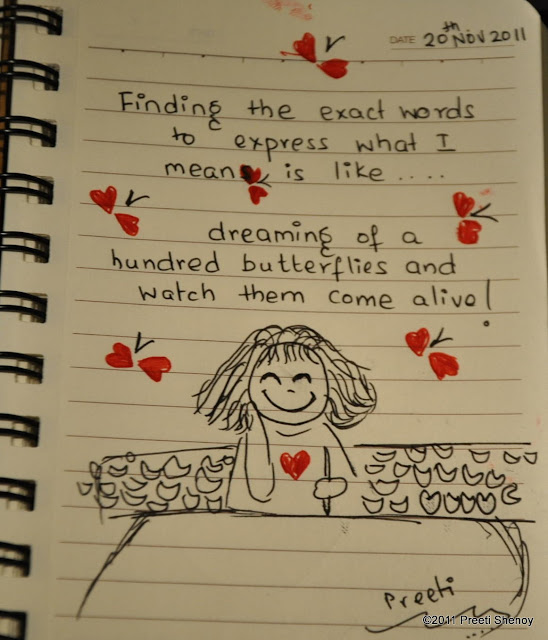 DATE 20th NOV 2011
Finding the exact words
to express what I
mean is like ....
dreaming of a
hundred butterflies and
watch them come alive!
Preeti
©2011 Preeti Shenoy